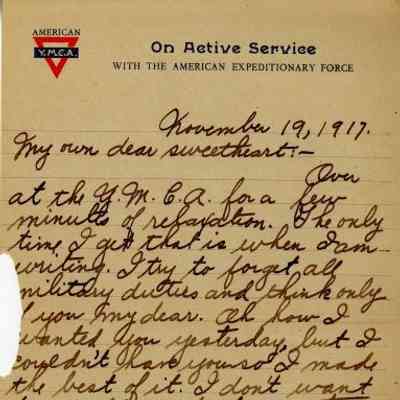 AMERICAN
Y.M.C.A.
On Active Service
WITH THE AMERICAN EXPEDITIONARY FORCE
November 19, 1917.
My own dear sweetheart:-
Over
at the Y.M.C.A. for a few
minults of relaxation. The only
time I get that is when I am
writing. I try to forget all
military duties and think only
of you my dear. Oh how I
wanted you yesterday, but I
couldn't have you so I made
the best of it. I don't want